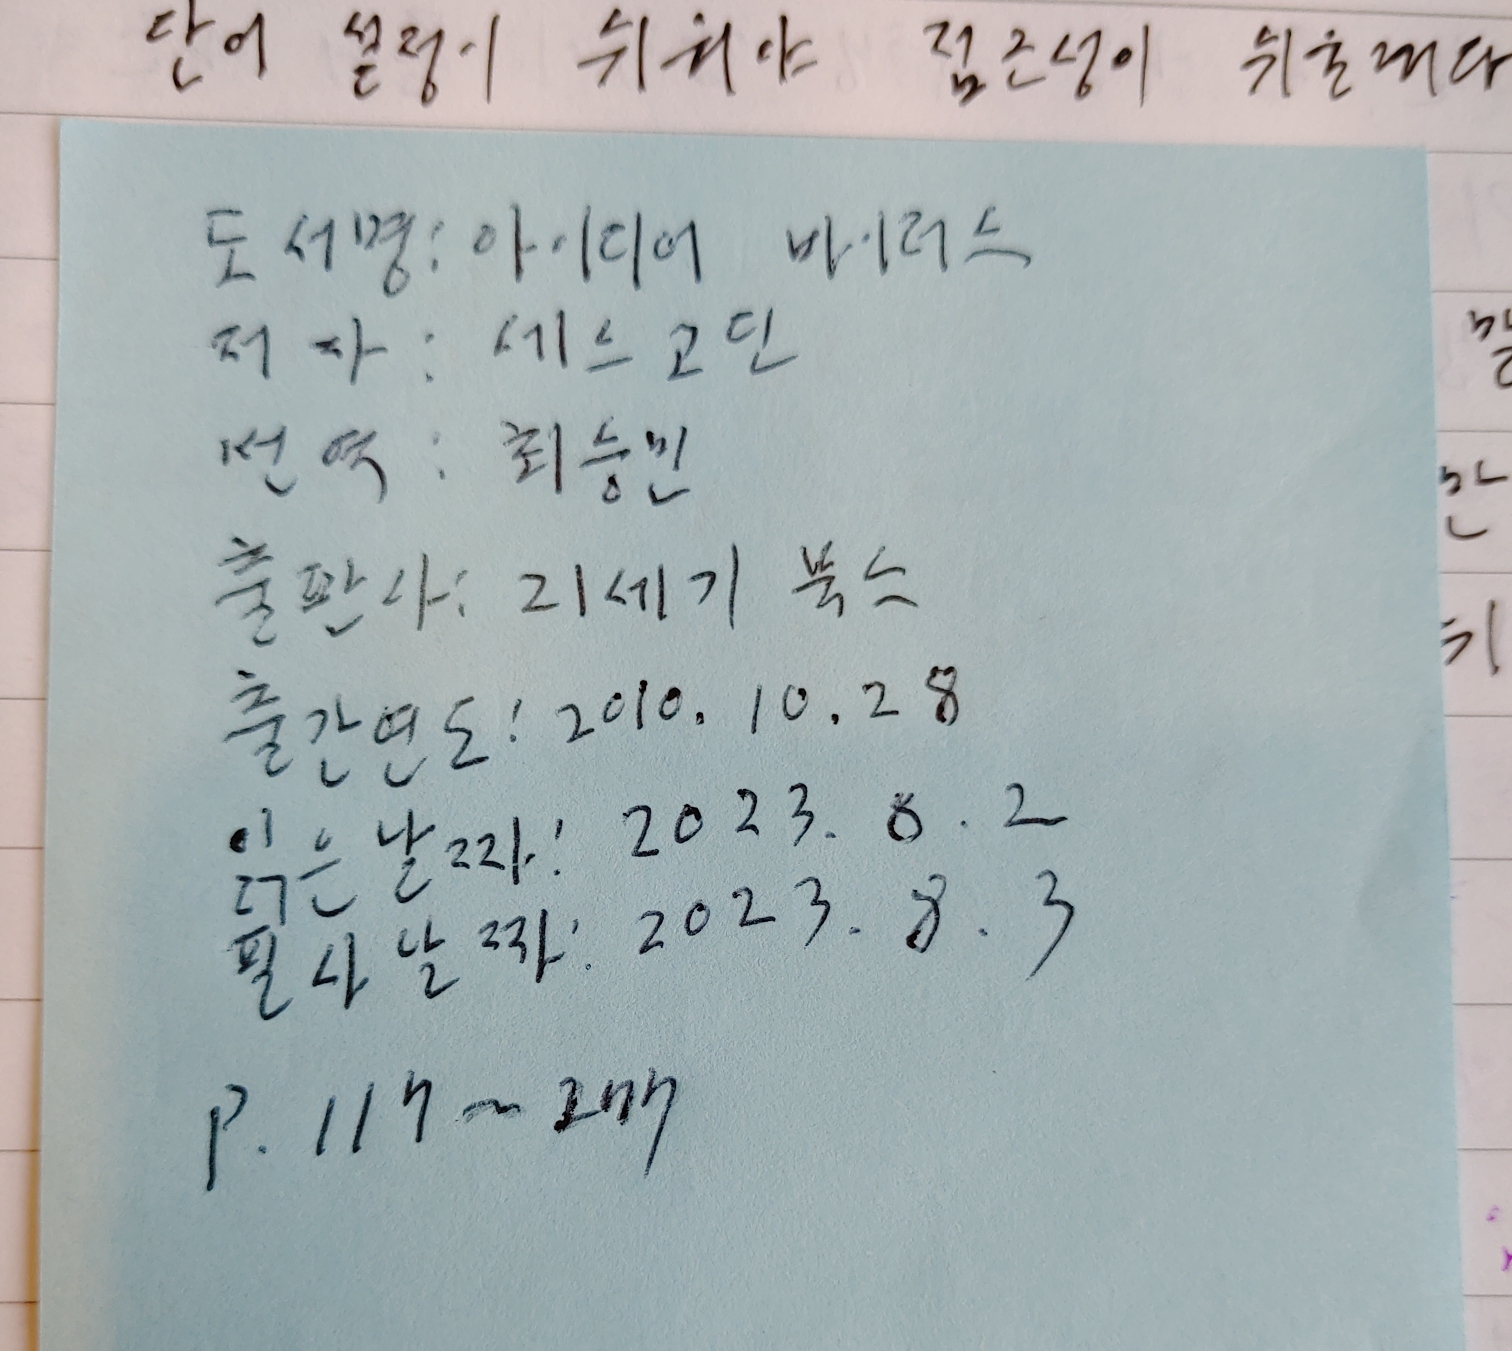 단어 설정이 쉬워야 접근성이 쉬울꺼다
도서명: 아이디어 바이러스
저자 : 세스고딘
번역 : 최승민
출판사: 21세기 북스
출간연도: 2010. 10. 28
읽은날짜: 2023. 8. 2
필사날짜: 2023. 8. 3
P. 117~277